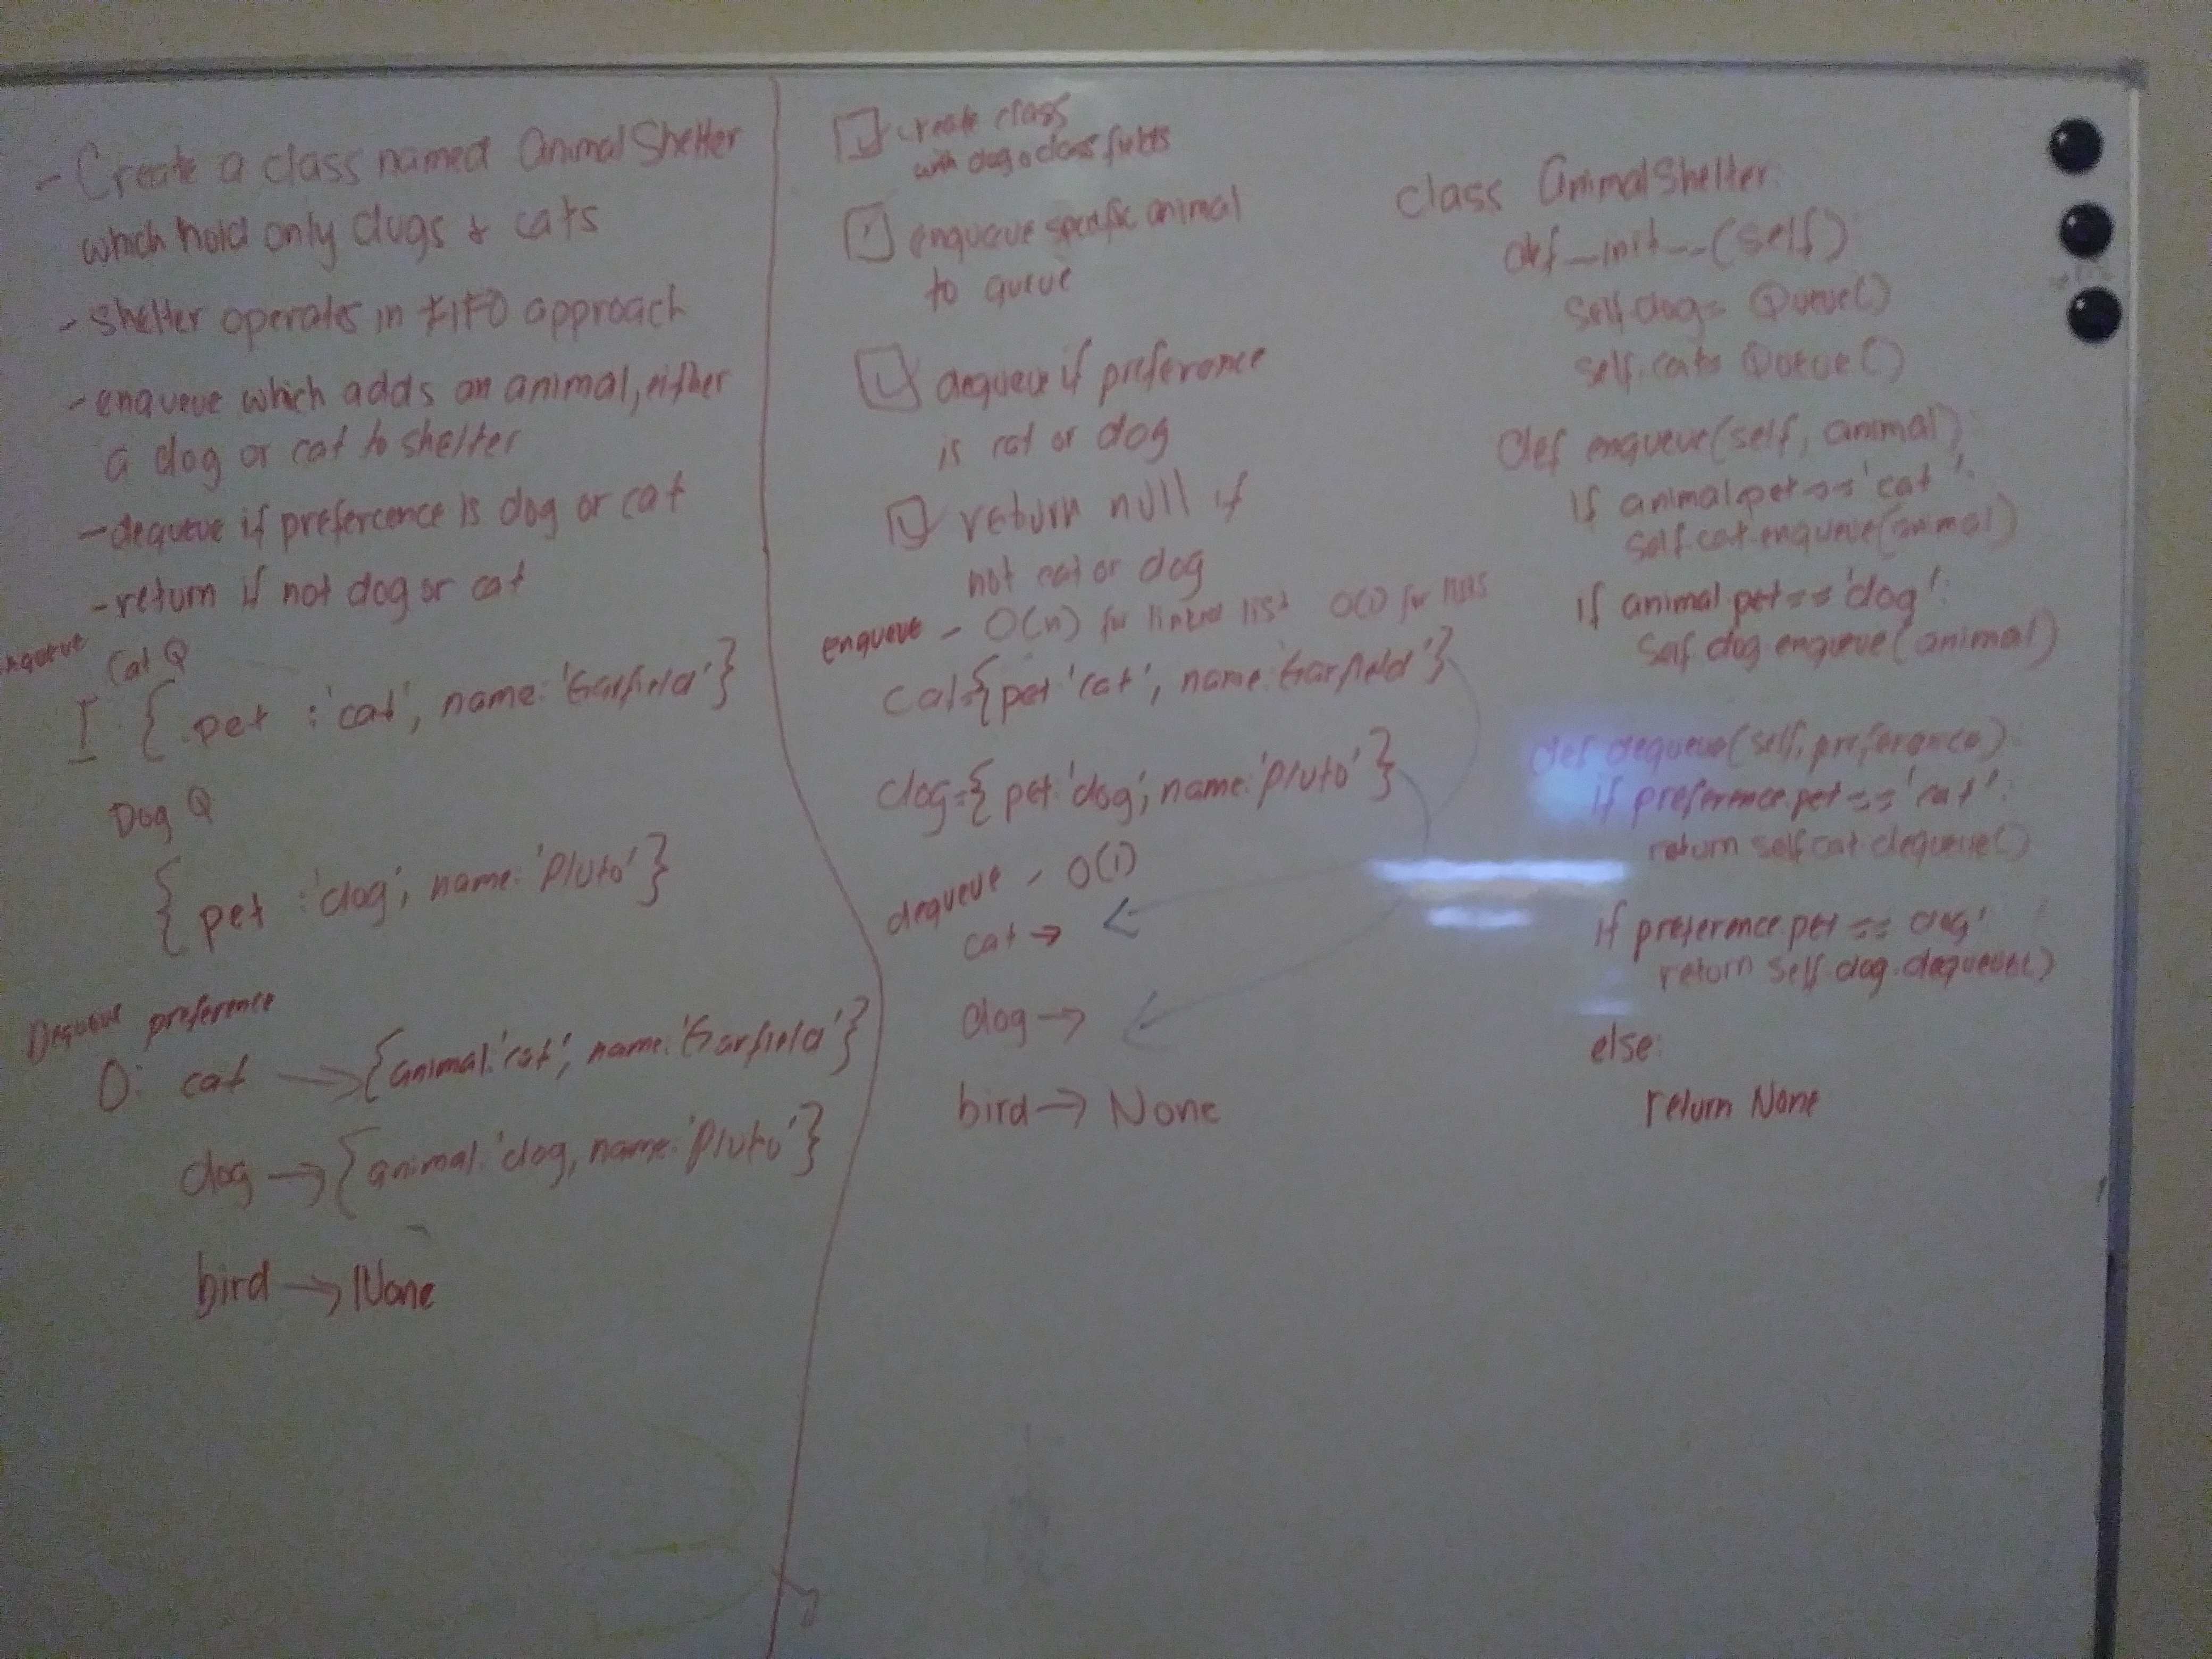 - Create a class named AnimalShelter
which hold only dogs & cats
- shelter operates in FIFO approach
- enqueue which adds an animal, either
a dog or cat to shelter
- dequeue if prefercence is dog or cat
- return if not dog or cat
enqueue
Cat Q
I: { pet : 'cat', name: 'Garfield' }
Dog Q
{ pet : 'dog', name: 'Pluto' }
Dequeue preference
O: cat → {animal: 'cat', name: 'Garfield'}
dog → {animal: 'dog, name: 'Pluto'}
bird → None
create class
with dog &
enqueue specific animal
to queue
dequeue if preference
is cat or dog
return null if
not cat or dog
enqueue - O(n) for linked list O(1) for
cat={pet 'cat', name: 'Garfield'}
dog={pet: 'dog', name: 'Pluto'}
dequeue - O(1)
cat →
dog →
bird → None
class AnimalShelter:
def __init__(self)
self.dog= Queue()
self.cat= Queue()
def enqueue(self, animal)
if animal.pet == 'cat':
self.cat.enqueue(animal)
if animal.pet == 'dog':
self.dog.enqueue(animal)
def dequeue(self, preference)
if preference.pet == 'cat':
return self.cat.dequeue()
if preference.pet == dog'
return self.dog.dequeue()
else:
return None